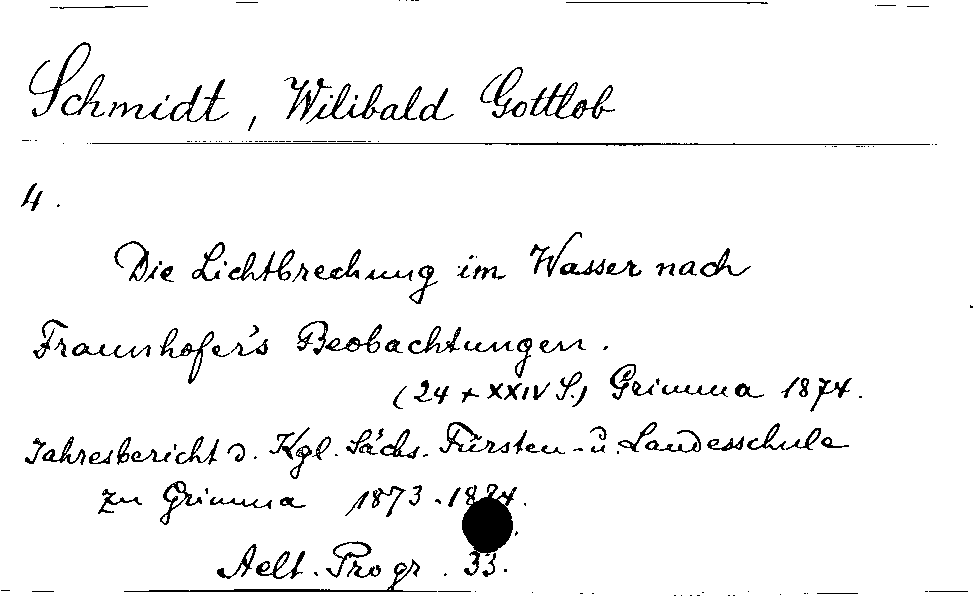 Schmidt, Wilibald Gottlob
4.
Die Lichtbrechung im Wasser nach
Fraunhofer's Beobachtungen.
(24 + XXIV S.) Grimma 1874.
Jahresbericht d. Kgl. Sächs. Fürsten- u. Landesschule
zu Grimma 1873-1874.
Aelt. Progr. 33.